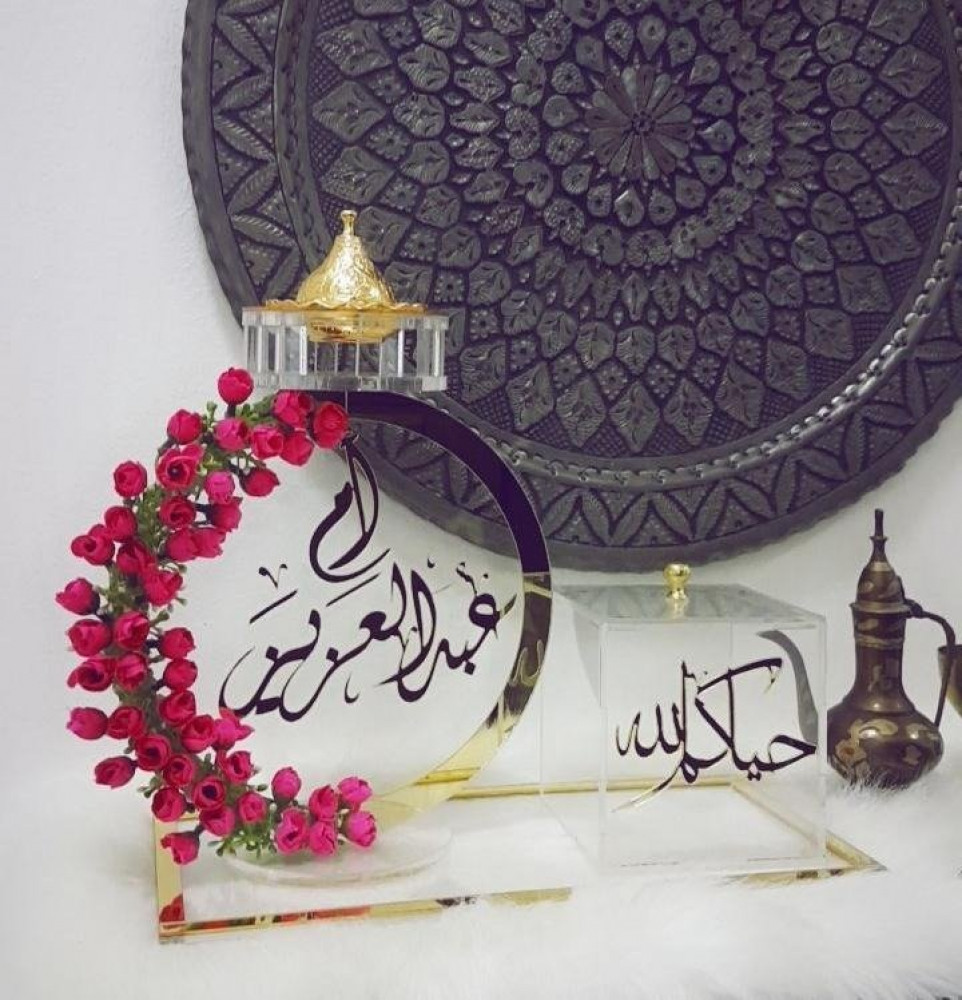 أم
عبدالعزيز
حياكم الله